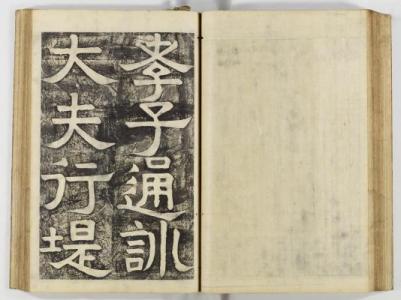 孝子通訓
大夫行堤